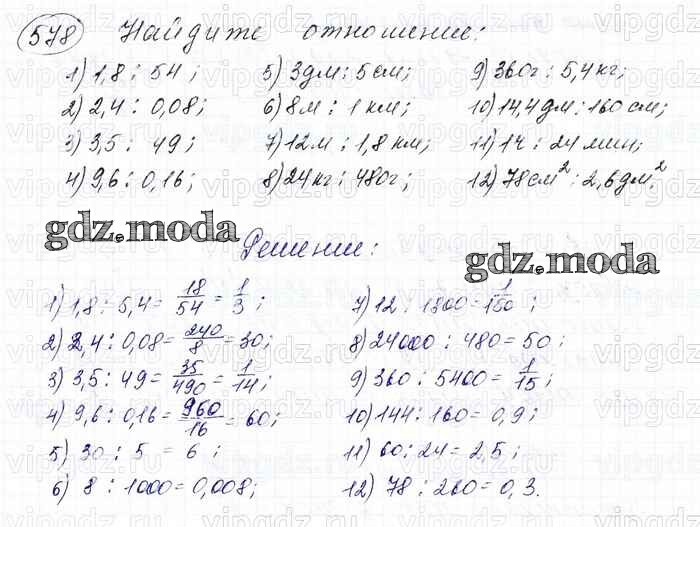 578 Найдите отношение:
1) 1,8 : 54; 5) 3дм : 5см; 9) 360г : 5,4кг;
2) 2,4 : 0,08; 6) 8м : 1км; 10) 14,4дм : 160см;
3) 3,5 : 49; 7) 12м : 1,8км; 11) 1ч : 24мин;
4) 9,6 : 0,16; 8) 24кг : 480г; 12) 78см² : 2,6дм².
gdz.moda
Решение:
gdz.moda
1) 1,8 : 5,4 = 18/54 = 1/3;
2) 2,4 : 0,08 = 240/8 = 30;
3) 3,5 : 49 = 35/490 = 1/14;
4) 9,6 : 0,16 = 960/16 = 60;
5) 30 : 5 = 6;
6) 8 : 1000 = 0,008;
7) 12 : 1800 = 1/150;
8) 24000 : 480 = 50;
9) 360 : 5400 = 1/15;
10) 144 : 160 = 0,9;
11) 60 : 24 = 2,5;
12) 78 : 260 = 0,3.